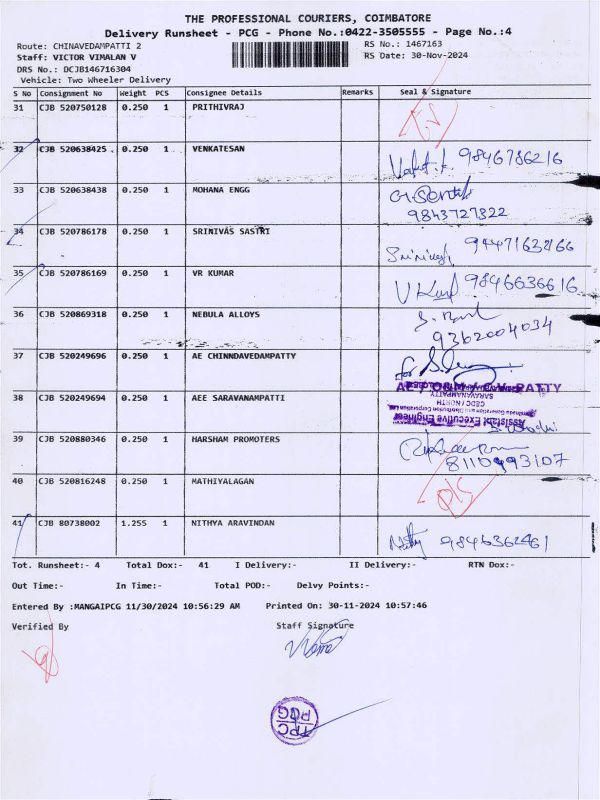 THE PROFESSIONAL COURIERS, COIMBATORE
Delivery Runsheet - PCG - Phone No.:0422-3505555 - Page No.:4
Route: CHINAVEDAMPATTI 2 RS No.: 1467163
Staff: VICTOR VIMALAN V RS Date: 30-Nov-2024
DRS No.: DCJB146716304
Vehicle: Two Wheeler Delivery
S No Consignment No Weight PCS Consignee Details Remarks Seal & Signature
31 CJB 520750128 0.250 1 PRITHIVRAJ
32 CJB 520638425 0.250 1 VENKATESAN 9846786216
33 CJB 520638438 0.250 1 MOHANA ENGG
9843727322
34 CJB 520786178 0.250 1 SRINIVAS SASTRI
35 CJB 520786169 0.250 1 VR KUMAR 9846636616
36 CJB 520869318 0.250 1 NEBULA ALLOYS
9362004034
37 CJB 520249696 0.250 1 AE CHINNDAVEDAMPATTY for
38 CJB 520249694 0.250 1 AEE SARAVANAMPATTI
SARAVANAMPATTY
CEDC / NORTH
Assistant Executive Engineer
39 CJB 520880346 0.250 1 HARSHAM PROMOTERS
8110993107
40 CJB 520816248 0.250 1 MATHIYALAGAN
41 CJB 80738002 1.255 1 NITHYA ARAVINDAN 9846362461
Tot. Runsheet:- 4 Total Dox:- 41 I Delivery:- II Delivery:- RTN Dox:-
Out Time:- In Time:- Total POD:- Delvy Points:-
Entered By :MANGAIPCG 11/30/2024 10:56:29 AM Printed On: 30-11-2024 10:57:46
Verified By Staff Signature
TPC
PCG